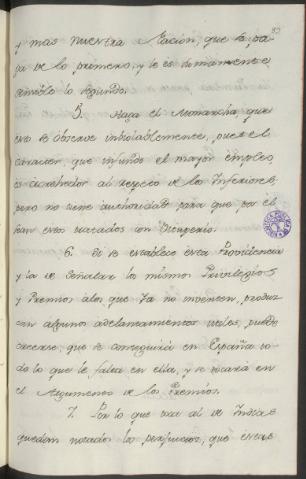 y mas nuestra Nacion, que se pa-
ga de lo primero, y le es sumamente
sensible lo segundo.
5. Haga el Monarcha, que
esto se observe inviolablemente, pues el
caracter, que infunde el mayor empleo,
es acrehedor al respeto de los Inferiores,
pero no tiene authoridad para que por el
sean estos tratados con vituperio.
6. Si se establece esta Providencia
y la de señalar los mismos Privilegios
y Premios a los que Ya no inventen, produz-
can algunos adelantamientos utiles, puede
creerse, que se conseguirá en España to-
do lo que le falta en ella, y se tocará en
el Argumento de los Premios.
7. Por lo que toca al de Indias
quedan notados los perjuicios, que en